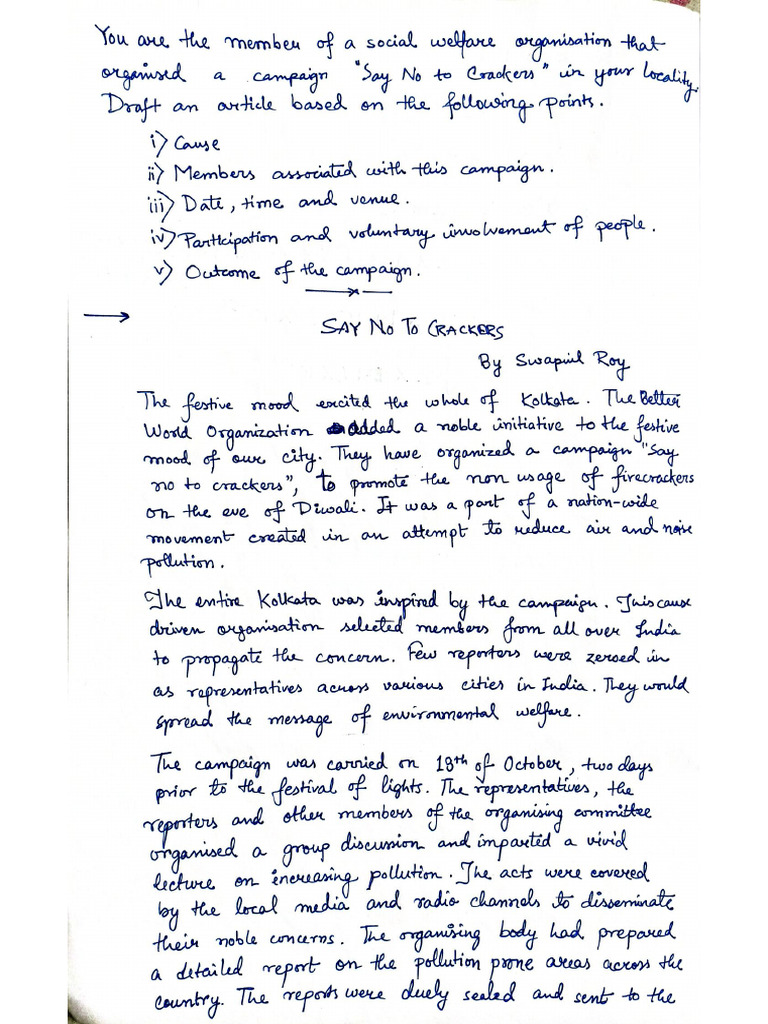 You are the member of a social welfare organisation that
organised a campaign "Say No to Crackers" in your locality.
Draft an article based on the following points.
i) Cause
ii) Members associated with this campaign.
iii) Date, time and venue.
iv) Participation and voluntary involvement of people.
v) Outcome of the campaign.
SAY NO TO CRACKERS
By Swapnil Roy
The festive mood excited the whole of Kolkata. The Better
World Organization added a noble initiative to the festive
mood of our city. They have organized a campaign "Say
no to crackers", to promote the non usage of firecrackers
on the eve of Diwali. It was a part of a nation-wide
movement created in an attempt to reduce air and noise
pollution.
The entire Kolkata was inspired by the campaign. This cause
driven organisation selected members from all over India
to propagate the concern. Few reporters were zeroed in
as representatives across various cities in India. They would
spread the message of environmental welfare.
The campaign was carried on 18th of October, two days
prior to the festival of lights. The representatives, the
reporters and other members of the organising committee
organised a group discussion and imparted a vivid
lecture on increasing pollution. The acts were covered
by the local media and radio channels to disseminate
their noble concerns. The organising body had prepared
a detailed report on the pollution prone areas across the
country. The reports were duely sealed and sent to the